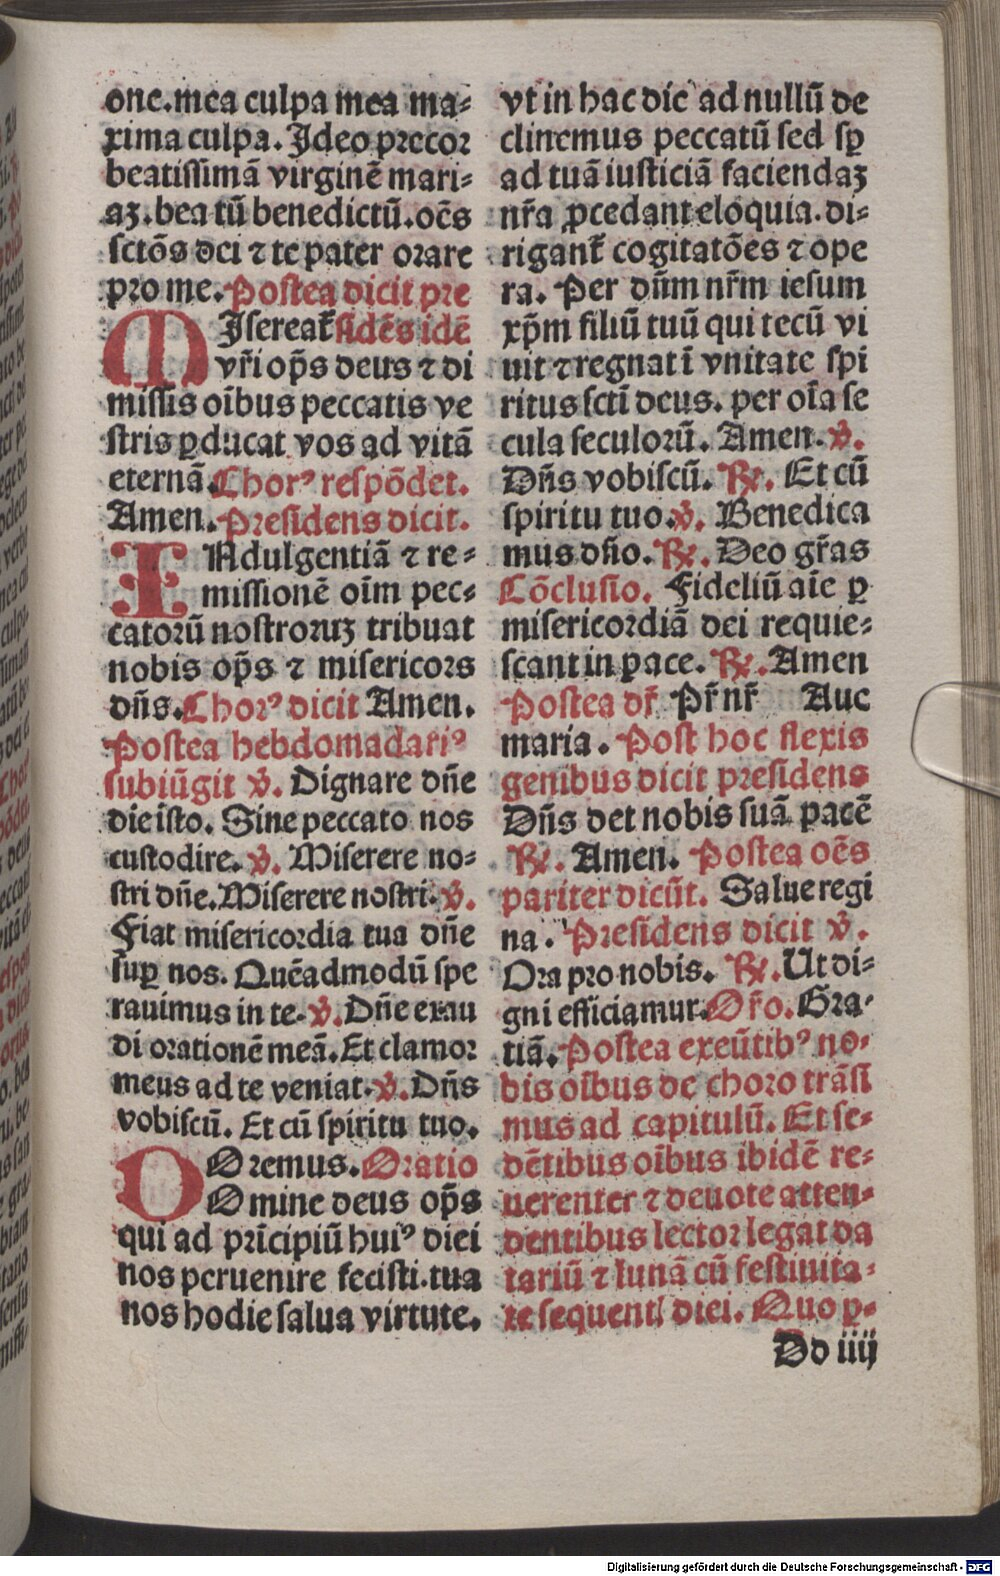 one.mea culpa mea ma⸗
xima culpa. Ideo precor
beatissimã virginẽ mari⸗
aꝫ.beatũ benedictũ.oẽs
sctõs dei ⁊ te pater orare
pro me. Postea dicit pre
MIsereat᷑ sidẽs idẽ
vr̃i op̃s deus ⁊ di
missis oĩbus peccatis ve
stris ꝑducat vos ad vitã
eternã. Chorꝰ respõdet.
Amen. Presidens dicit.
INdulgentiã ⁊ re⸗
missionẽ oĩm pec⸗
catorũ nostroruꝫ tribuat
nobis op̃s ⁊ misericors
dñs. Chorꝰ dicit Amen.
Postea hebdomadariꝰ
subiũgit ℣. Dignare dñe
die isto. Sine peccato nos
custodire. ℣. Miserere no⸗
stri dñe. Miserere nostri. ℣.
Fiat misericordia tua dñe
suꝑ nos. Quẽadmodũ spe
rauimus in te. ℣. Dñe exau
di orationẽ meã. Et clamor
meus ad te veniat. ℣. Dñs
vobiscũ. Et cũ spiritu tuo.
Oremus. Oratio
DOmine deus op̃s
qui ad prĩcipiũ huiꝰ diei
nos peruenire fecisti.tua
nos hodie salua virtute.
vt in hac die ad nullũ de
clinemus peccatũ sed sꝑ
ad tuã iusticiã faciendaꝫ
nr̃a ꝓcedant eloquia.di⸗
rigant᷑ cogitatões ⁊ ope
ra. Per dñm nr̃m iesum
xp̃m filiũ tuũ qui tecũ vi
uit ⁊ regnat ĩ vnitate spi
ritus sctĩ deus. per oĩa se
cula seculorũ. Amen. ℣.
Dñs vobiscũ. ℟. Et cũ
spiritu tuo. ℣. Benedica
mus dño. ℟. Deo gr̃as
Cõclusio. Fideliũ aĩe ꝑ
misericordiã dei requie⸗
scant in pace. ℟. Amen
Postea dr̃ Pr̃ nr̃ Aue
maria. Post hoc flexis
genibus dicit presidens
Dñs det nobis suã pacẽ
℟. Amen. Postea oẽs
pariter dicũt. Salue regi
na. Presidens dicit ℣.
Ora pro nobis. ℟. Ut di⸗
gni efficiamur. Or̃o. Gra⸗
tiã. Postea exeũtibꝰ no⸗
bis oĩbus de choro trãsi
mus ad capitulũ. Et se⸗
dẽtibus oĩbus ibidẽ re⸗
uerenter ⁊ deuote atten⸗
dentibus lector legat da
tariũ ⁊ lunã cũ festiuita⸗
te sequenti diei. Quo ꝑ⸗
Dd iiij
Digitalisierung gefördert durch die Deutsche Forschungsgemeinschaft - DFG